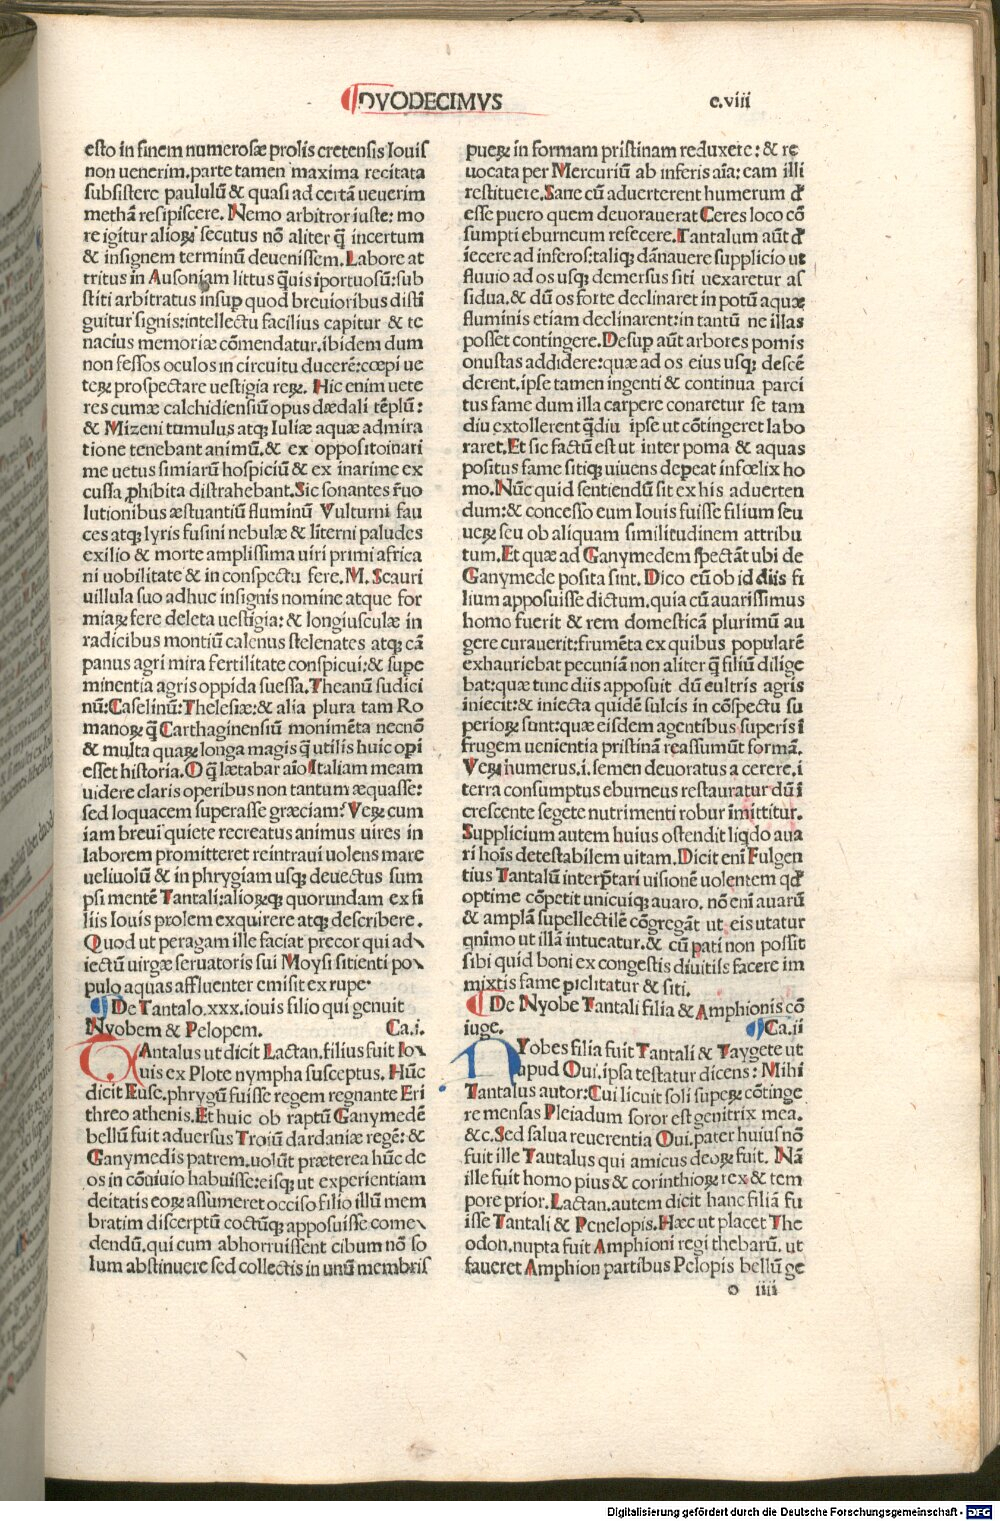 DVODECIMVS
c.viii
esto in finem numerosæ prolis cretensis Iouis
non uenerim.parte tamen maxima recitata
subsistere paululū & quasi ad certā ueuerim
methā resipiscere. Nemo arbitror iuste: mo
re igitur alioꝝ secutus nō aliter q̄ incertum
& insignem terminū deuenissem. Labore at
tritus in Ausoniam littus q̄uis iportuosū:sub
stiti arbitratus insuꝑ quod breuioribus disti
guitur signis:intellectu facilius capitur & te
nacius memoriæ cōmendatur.ibidem dum
non fessos oculos in circuitu ducerē:cœpi ue
teꝝ prospectare uestigia reꝝ. Hic enim uete
res cumæ calchidiensiū opus dædali tēplū:
& Mizeni tumulus atqꝫ Iuliæ aquæ admira
tione tenebant animū.& ex oppositoinari
me uetus simiarū hospiciū & ex inarime ex
cussa ꝓhibita distrahebant.Sic sonantes r̄uo
lutionibus æstuantiū fluminū Vulturni fau
ces atqꝫ lyris fusini nebulæ & literni paludes
exilio & morte amplissima uiri primi africa
ni uobilitate & in conspectu fere.M.Scauri
uillula suo adhuc insignis nomine atque for
miaꝝ fere deleta uestigia: & longiusculæ in
radicibus montiū calenus stelenates atqꝫ cā
panus agri mira fertilitate conspicui:& supe
minentia agris oppida suessa.Theanū sudici
nū:Caselinū:Thelesiæ:& alia plura tam Ro
manoꝝ q̄ Carthaginensiū monimēta necnō
& multa quaꝝ longa magis q̄ utilis huic opi
esset historia.O q̄ lætabar aīo Italiam meam
uidere claris operibus non tantum æquasse:
sed loquacem superasse græciam: Veꝝ cum
iam breui quiete recreatus animus uires in
laborem promitteret reintraui uolens mare
ueliuolū & in phrygiam usqꝫ deuectus sum
psi mentē Tantali:alioꝝqꝫ quorundam ex fi
liis Iouis prolem exquirere atqꝫ describere.
Quod ut peragam ille faciat precor qui ad\
iectū uirgæ seruatoris sui Moysi sitienti po\
pulo aquas affluenter emisit ex rupe·
De Tantalo.xxx.iouis filio qui genuit
Nyobem & Pelopem. Ca.i.
TAntalus ut dicit Lactan.filius fuit Io\
uis ex Plote nympha susceptus. Hūc
dicit Euse.phrygū fuisse regem regnante Eri
threo athenis.Et huic ob raptū Ganymedē
bellū fuit aduersus Troiū dardaniæ regē: &
Ganymedis patrem.uolūt præterea hūc de
os in cōuiuio habuisse:eisqꝫ ut experientiam
deitatis eoꝝ assumeret occiso filio illū mem
bratim discerptū coctūqꝫ apposuisse come\
dendū.qui cum abhorruissent cibum nō so
lum abstinuere sed collectis in unū membris
pueꝝ in formam pristinam reduxere: & re
uocata per Mercuriū ab inferis aīa: eam illi
restituere.Sane cū aduerterent humerum đ
esse puero quem deuorauerat Ceres loco cō
sumpti eburneum refecere.Tantalum aūt đ
iecere ad inferos:taliqꝫ dānauere supplicio ut
fluuio ad os usqꝫ demersus siti uexaretur as
sidua.& dū os forte declinaret in potū aquæ
fluminis etiam declinarent:in tantū ne illas
posset contingere.Desuꝑ aūt arbores pomis
onustas addidere:quæ ad os eius usqꝫ descē
derent.ipse tamen ingenti & continua parci
tus fame dum illa carpere conaretur se tam
diu extollerent q̄diu ipse ut cōtingeret labo
raret.Et sic factū est ut inter poma & aquas
positus fame sitiqꝫ uiuens deꝑeat infœlix ho
mo.Nūc quid sentiendū sit ex his aduerten
dum:& concesso eum Iouis fuisse filium seu
ueꝝ seu ob aliquam similitudinem attribu
tum.Et quæ ad Ganymedem spectāt ubi de
Ganymede posita sint. Dico eū ob id diis fi
lium apposuisse dictum.quia cū auarissimus
homo fuerit & rem domesticā plurimū au
gere curauerit:frumēta ex quibus popularē
exhauriebat pecuniā non aliter q̄ filiū dilige
bat:quæ tunc diis apposuit dū cultris agris
iniecit:& iniecta quidē sulcis in cōspectu su
perioꝝ sunt:quæ eisdem agentibus superis ī
frugem uenientia pristinā reassumūt formā.
Veꝝ humerus.i.semen deuoratus a cerere.ī
terra consumptus eburneus restauratur dū ī
crescente segete nutrimenti robur īmittitur.
Supplicium autem huius ostendit liqdo aua
ri hoīs detestabilem uitam.Dicit enī Fulgen
tius Tantalū interp̄tari uisionē uolentem qđ
optime cōpetit unicuiqꝫ auaro. nō enī auarū
& amplā supellectilē cōgregāt ut eis utatur
qnimo ut illā intueatur.& cū pati non possit
sibi quid boni ex congestis diuitiis facere im
mixtis fame piclitatur & siti.
De Nyobe Tantali filia & Amphionis cō
iuge. Ca.ii
NYobes filia fuit Tantali & Taygete ut
apud Oui.ipsa testatur dicens: Mihi
Tantalus autor:Cui licuit soli supeꝝ cōtinge
re mensas Pleiadum soror est genitrix mea.
&c.Sed salua reuerentia Oui.pater huius nō
fuit ille Tautalus qui amicus deoꝝ fuit. Nā
ille fuit homo pius & corinthioꝝ rex & tem
pore prior.Lactan.autem dicit hanc filiā fu
isse Tantali & Penelopis.Hæc ut placet The
odon.nupta fuit Amphioni regi thebarū. ut
faueret Amphion partibus Pelopis bellū ge
o iiii
Digitalisierung gefördert durch die Deutsche Forschungsgemeinschaft - DFG